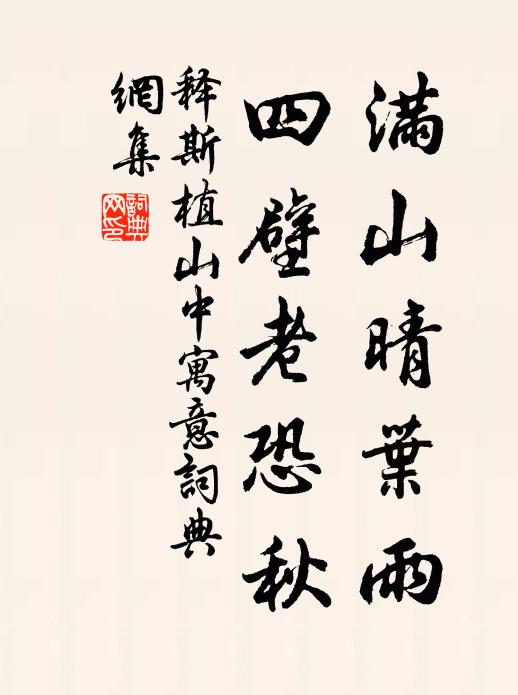 滿山晴葉雨
四壁老恐秋
释斯植山中寓意詞典
網集
詞典
网印